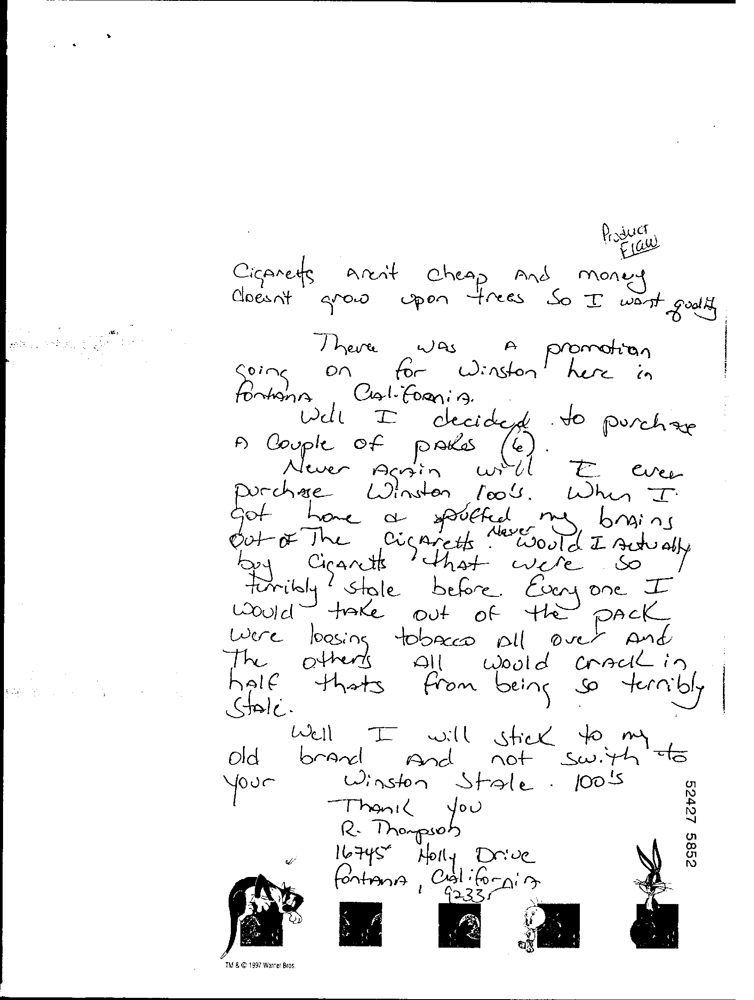 Product
Flaw
Cigaretts Aren't cheap And money
doesn't grow upon trees So I want quality
There was A promotion
going on for Winston here in
Fontana California.
Well I decided to purchase
A Couple of pakes (6).
Never Again will I ever
purchase Winston 100's. When I
got home a puffed my brains
out of The Cigaretts. Never would I Actually
buy Cigaretts that were so
terribly stale before. Every one I
would take out of the pack
were loosing tobacco All over And
The others All would crack in
half thats from being so terribly
Stale.
Well I will stick to my
old brand And not swith to
your Winston Stale. 100's
Thank you
R. Thompson
16745 Holly Drive
Fontana, California
92335
52427 5852
TM & © 1997 Warner Bros.